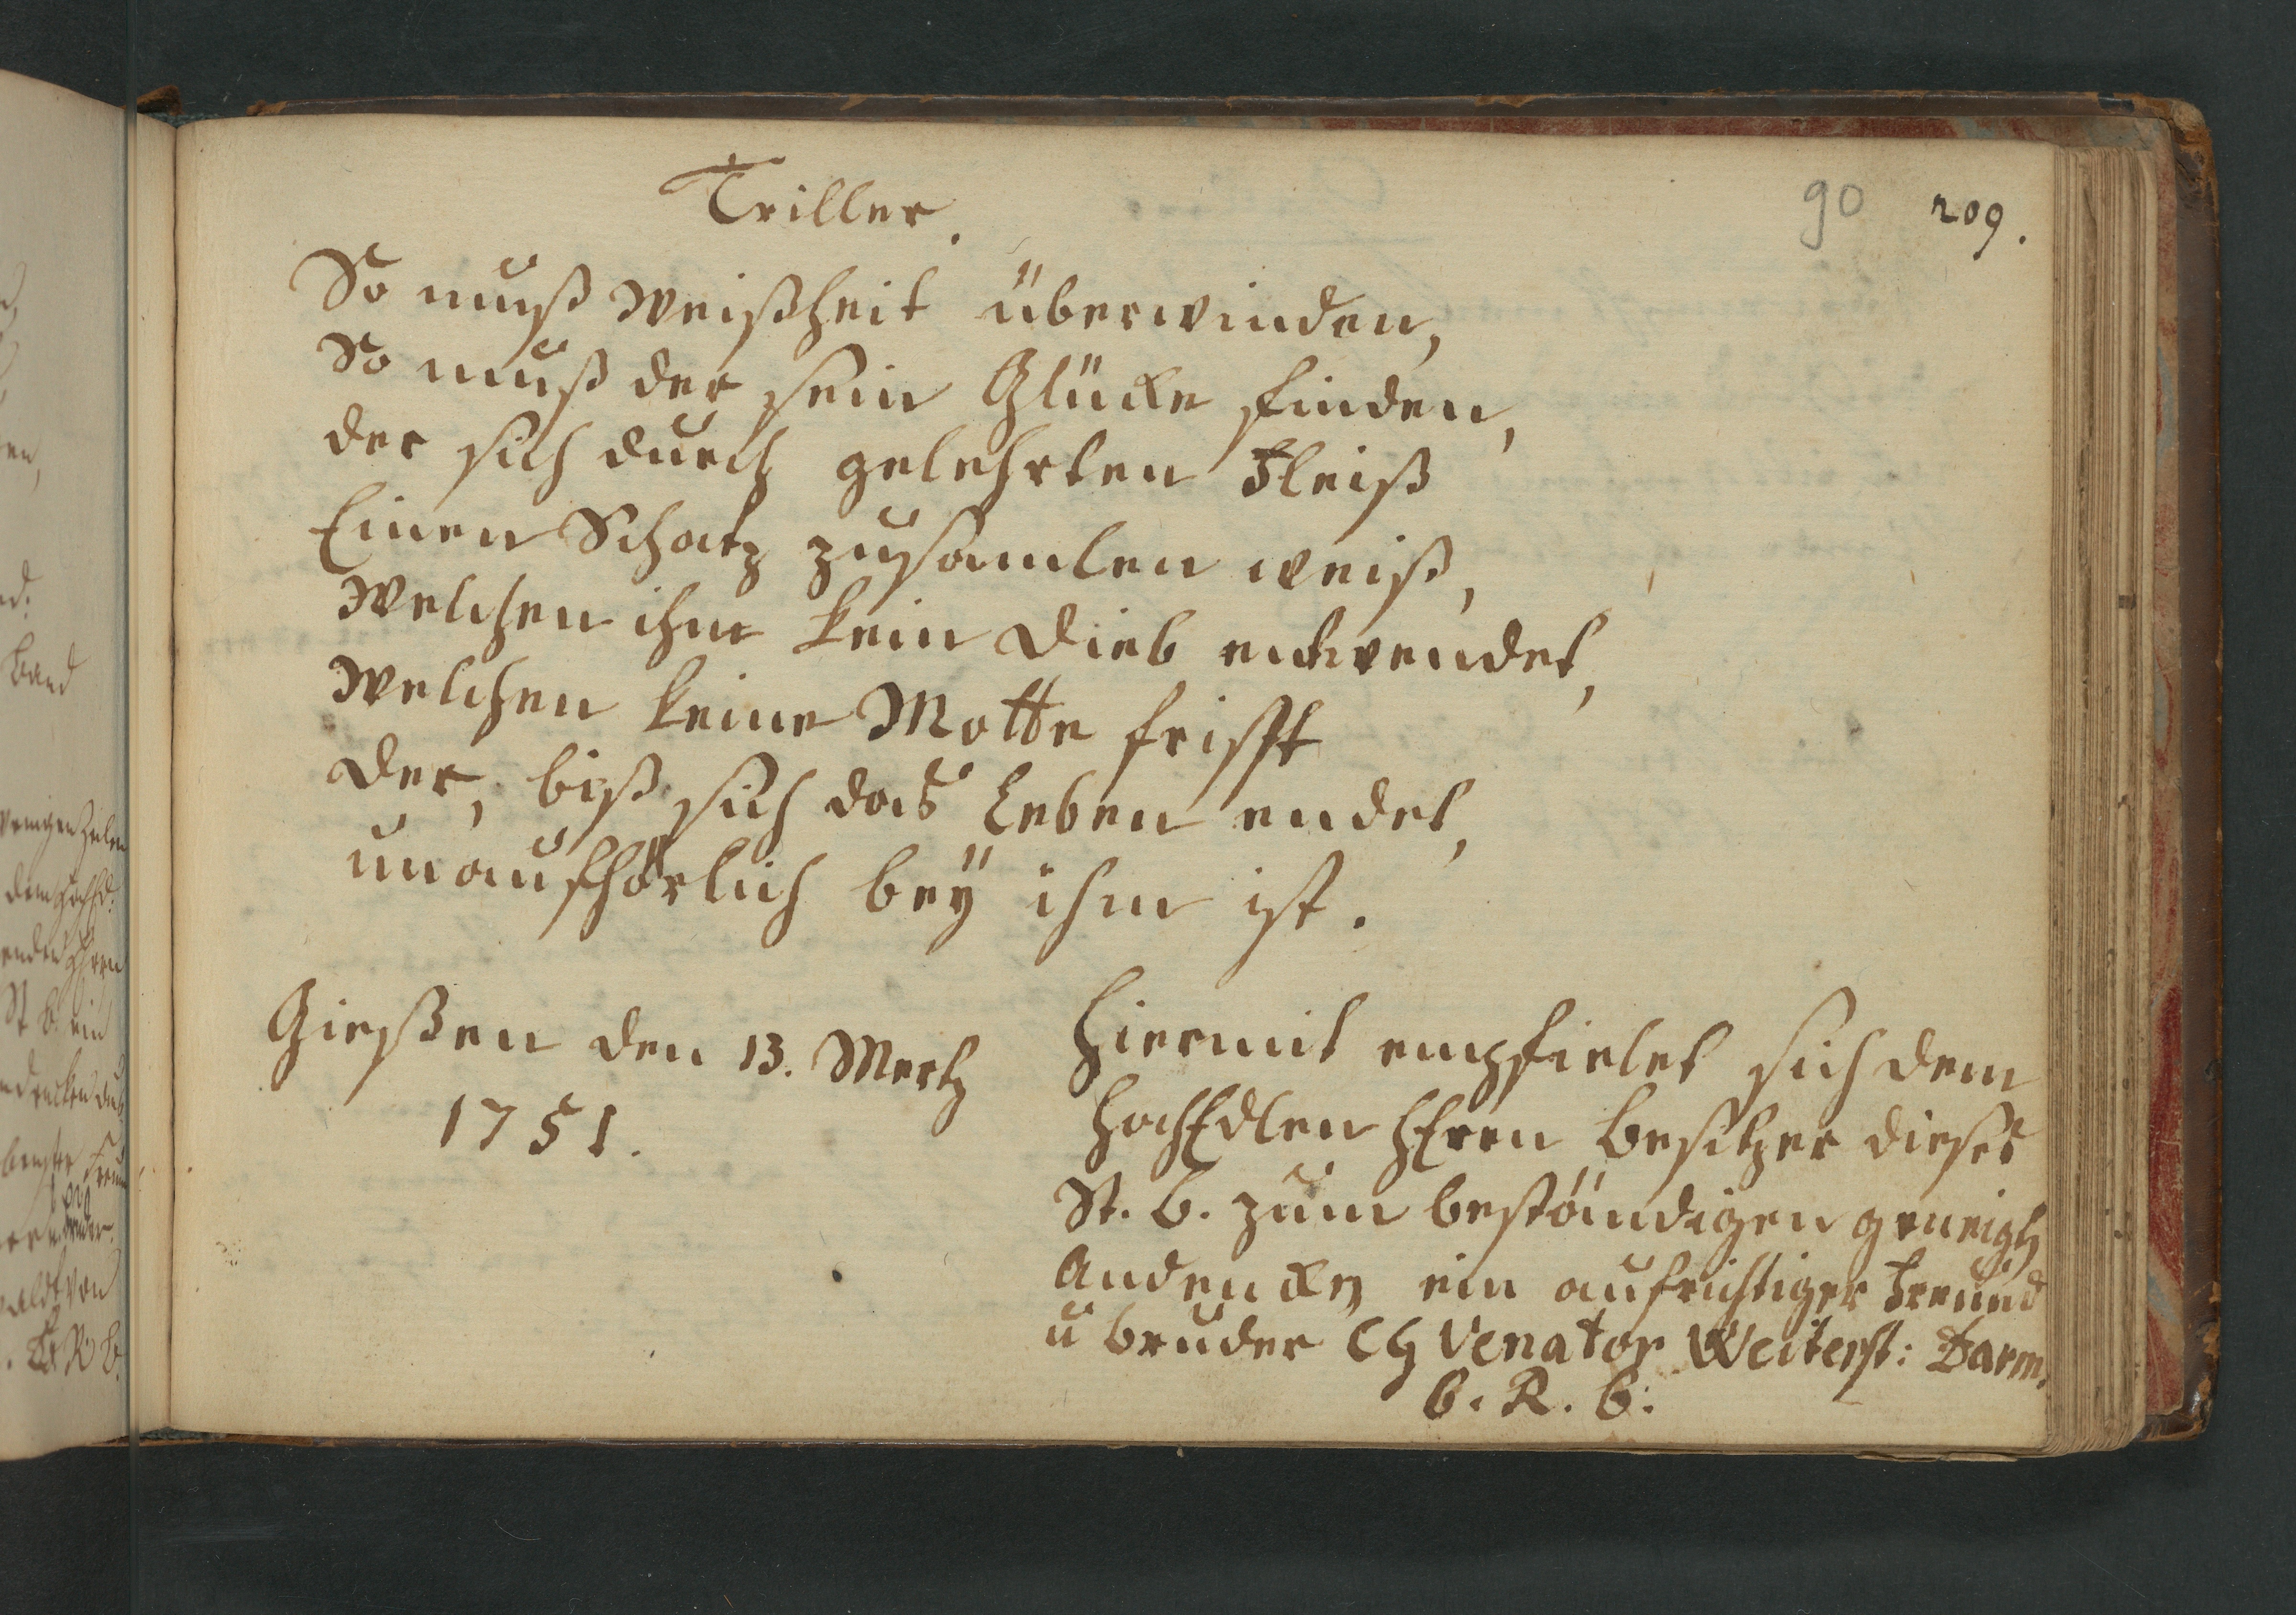 90 209.
Triller.
So muß Weißheit überwinden,
So muß der sein Glücke finden,
der sich durch gelehrten Fleiß
Einen Schatz zusamlen weiß,
Welchen ihm kein Dieb entwendet,
Welchen keine Motte frißt
Der, biß sich das Leben endet,
unaufhörlich bey ihm ist.
Gießen den 13. Mertz
1751.
Hiermit empfielet sich dem
HochEdlen HErrn Besitzer dieses
St. B. zum beständigen geneigten
Andencken ein aufrichtiger Freund
u Bruder CH Venator Weiterst: Darm.
B. R. B.
Band